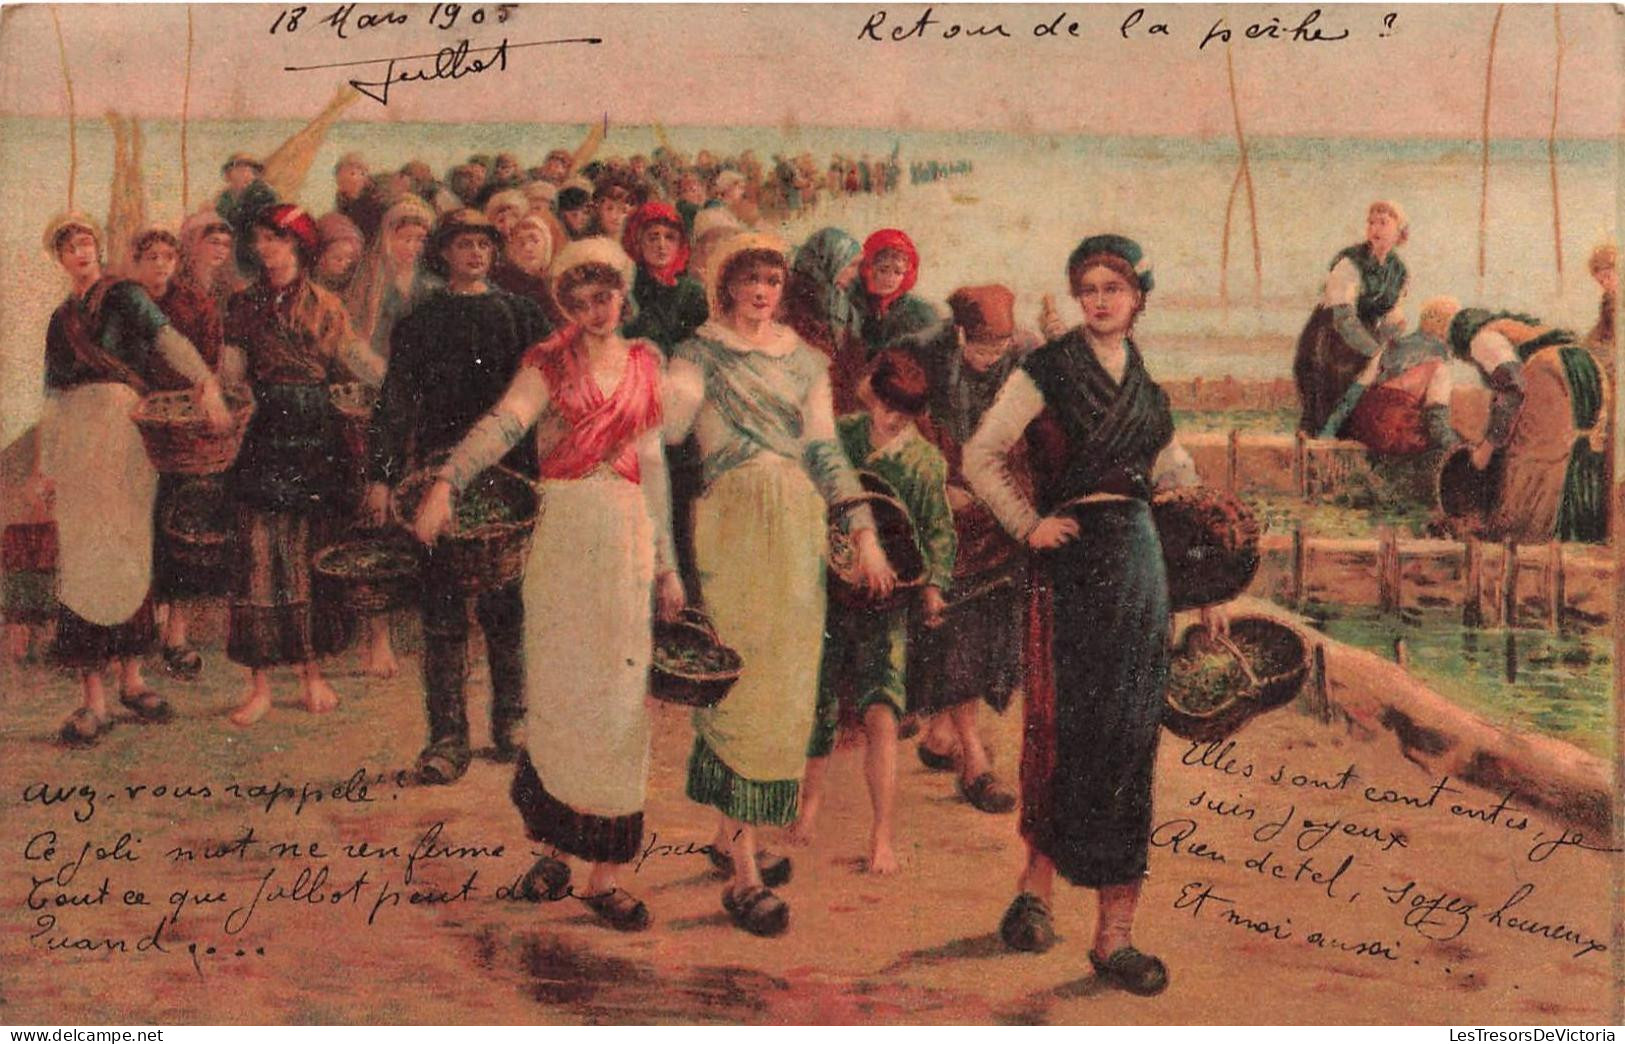 18 Mars 1905
Julbot
Retour de la pêche ?
avez-vous rappelé ?
Ce joli mot ne renferme pas
Tout ce que Julbot peut dire
Quand ....
Elles sont contentes, je
suis joyeux
Rien de tel, soyez heureux
Et moi aussi...
LesTresorsDeVictoria